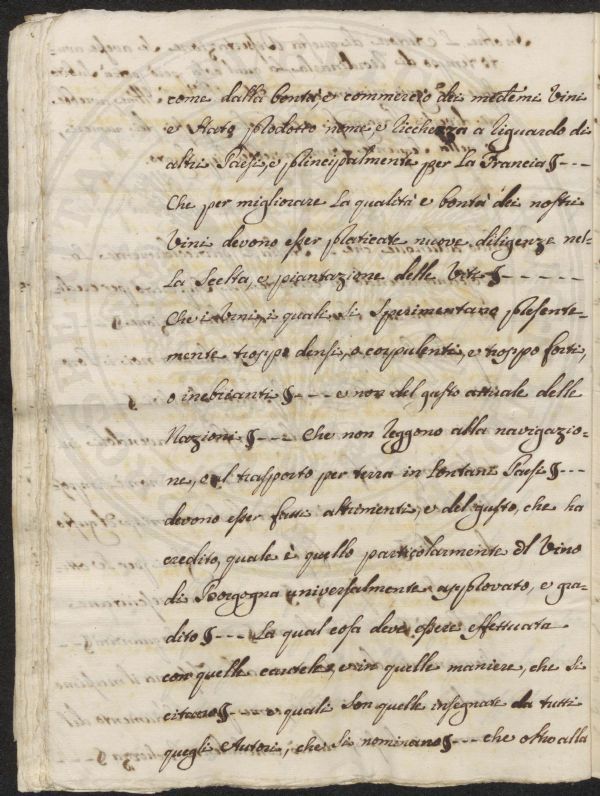 come dalla bontà, e commercio dei medemi Vini
è stato prodotto nome, e Ricchezza a riguardo di
altri Paesi, e principalmente per la Francia § - - - -
Che per migliorare la qualità e bontà dei nostri
Vini devono esser praticate nuove diligenze nel=
la Scelta, e piantazione delle Viti § - - - - - -
Che i Vini, i quali si sperimentano presente=
mente troppo densi, o corpulenti, e troppo forti,
o inebrianti § - - - - e non del gusto attuale delle
Nazioni § - - - - Che non reggono alla navigazio=
ne, o al trasporto per terra in Lontani Paesi § - - -
devono esser fatti altrimenti, e del gusto, che ha
credito, quale è quello particolarmente del Vino
di Borgogna universalmente approvato, e gra=
dito § - - - - La qual cosa deve essere effettuata
con quelle cautele, e in quelle maniere, che si
citano § - - e quali son quelle insegnate da tutti
quegli Autori, che si nominano § - - - che oltre alla